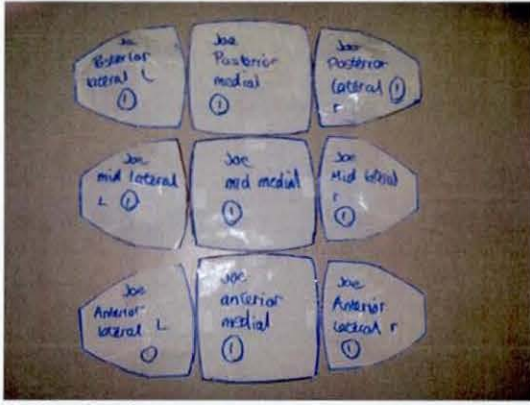 Joe
Posterior
lateral L
①
Joe
Posterior
medial
①
Joe
Posterior
lateral ①
r
Joe
mid lateral
L ①
Joe
mid medial
①
Joe
Mid lateral
r
①
Joe
Anterior
lateral L
Joe
anterior
medial
①
Joe
Anterior
lateral r
①